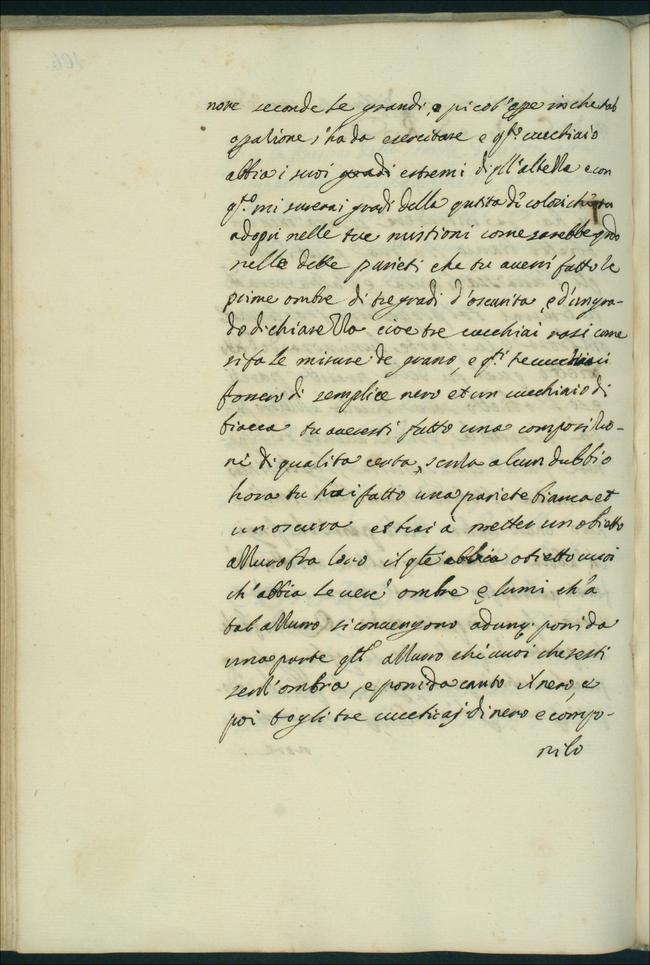 nore seconde le grandi, e picol' ope in che tal
opatione s'ha da esercitare e qsto cucchiaio
abbia i suoi gradi estremi di pll' altella e con
qsto mi surerai i gradi della qutita d' colori ch' tu
adopri nelle tue mistioni come sarebbe qndo
nelle dette parieti che tu avessi fatto le
prime ombre di tre gradi d'oscurita, e d'un gra-
do di chiarezza cioe tre cucchiai rasi come
si fa le misure de grano, e qsti tre cucchiai
fonero di semplice nero et un cucchiaio di
biacca tu averesti fatto una compositio-
ne di qualita certa, senza alcun dubbio
hora tu hai fatto una pariete bianca et
un oscura et hai à metter un obietto
alluro fra loro il qle abbia obietto vuoi
ch' abbia le vere ombre e lumi ch' a
tal alluro si convengono adunq. poni da
una parte qll alluro che vuoi che resti
senz' ombra, e poni da canto il nero, e
poi togli tre cucchiaj di nero e compo-
nilo